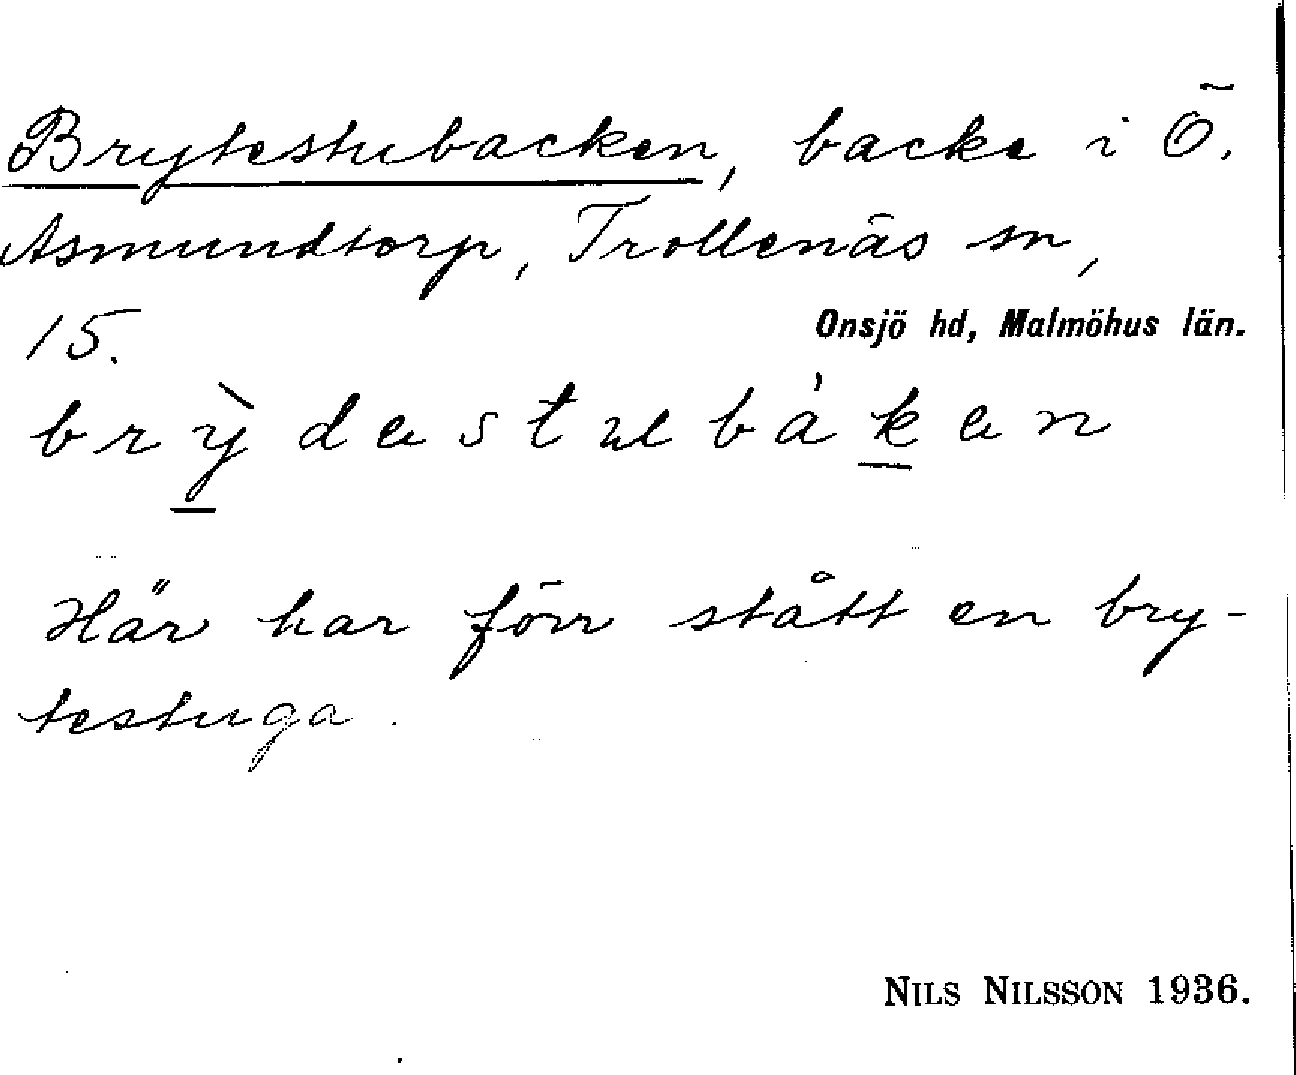 Brytestubacken, backe i Ö.
Asmundtorp, Trollenäs sn,
15.
Onsjö hd, Malmöhus län.
brỳdastubàkan
Här har förr stått en bry-
testuga.
NILS NILSSON 1936.